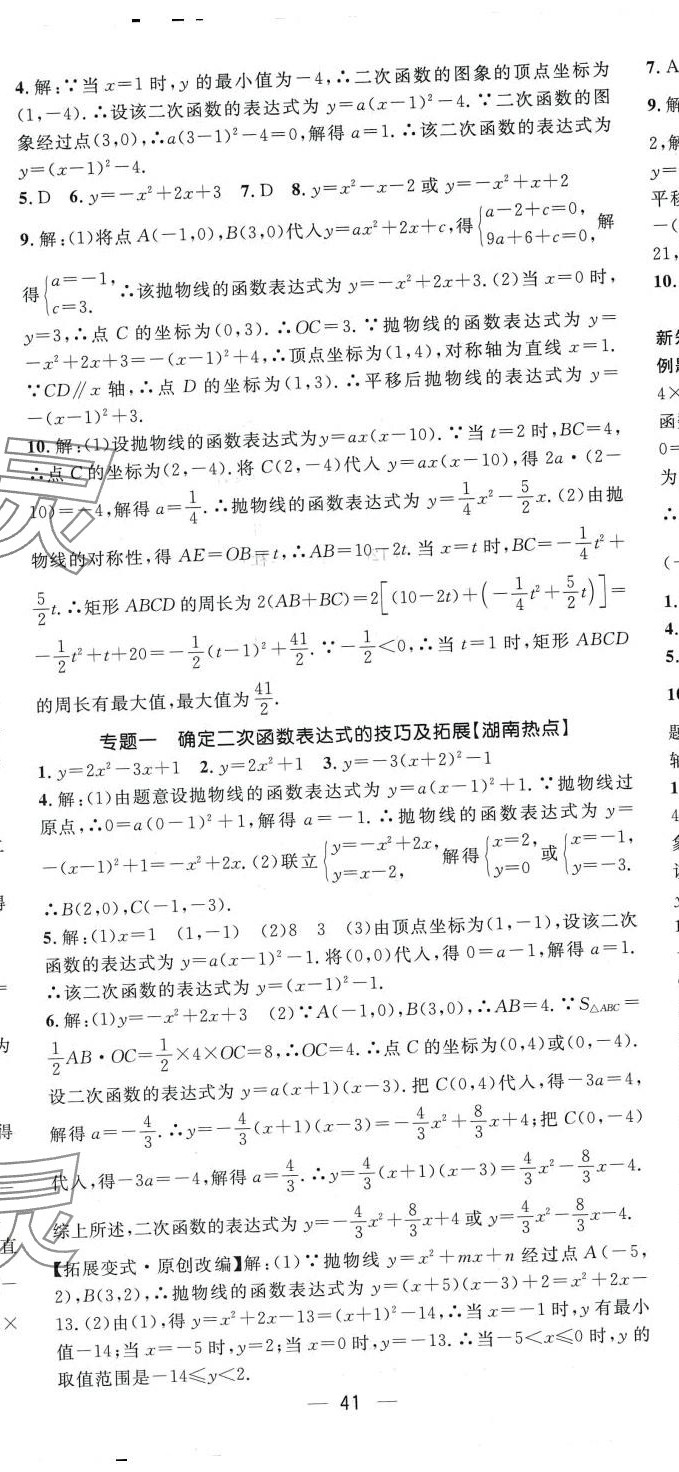 4.解:∵当 x=1 时,y 的最小值为-4,∴二次函数的图象的顶点坐标为
(1,-4).∴设该二次函数的表达式为 y=a(x-1)²-4.∵二次函数的图
象经过点(3,0),∴a(3-1)²-4=0,解得 a=1.∴该二次函数的表达式为
y=(x-1)²-4.
5.D 6.y=-x²+2x+3 7.D 8.y=x²-x-2 或 y=-x²+x+2
9.解:(1)将点 A(-1,0),B(3,0)代入y=ax²+2x+c,得{a-2+c=0, 9a+6+c=0,解
得{a=-1, c=3. ∴该抛物线的函数表达式为 y=-x²+2x+3.(2)当 x=0 时,
y=3,∴点 C 的坐标为(0,3).∴OC=3.∵抛物线的函数表达式为 y=
-x²+2x+3=-(x-1)²+4,∴顶点坐标为(1,4),对称轴为直线 x=1.
∵CD∥x 轴,∴点 D 的坐标为(1,3).∴平移后抛物线的表达式为 y=
-(x-1)²+3.
10.解:(1)设抛物线的函数表达式为y=ax(x-10).∵当 t=2 时,BC=4,
∴点 C 的坐标为(2,-4).将 C(2,-4)代入 y=ax(x-10),得 2a·(2-
10)=-4,解得 a=1/4.∴抛物线的函数表达式为 y=1/4x²-5/2x.(2)由抛
物线的对称性,得 AE=OB=t,∴AB=10-2t.当 x=t 时,BC=-1/4t²+
5/2t.∴矩形 ABCD 的周长为 2(AB+BC)=2[(10-2t)+(-1/4t²+5/2t)]=
-1/2t²+t+20=-1/2(t-1)²+41/2.∵-1/2<0,∴当 t=1 时,矩形 ABCD
的周长有最大值,最大值为41/2.
专题一 确定二次函数表达式的技巧及拓展【湖南热点】
1.y=2x²-3x+1 2.y=2x²+1 3.y=-3(x+2)²-1
4.解:(1)由题意设抛物线的函数表达式为 y=a(x-1)²+1.∵抛物线过
原点,∴0=a(0-1)²+1,解得 a=-1.∴抛物线的函数表达式为 y=
-(x-1)²+1=-x²+2x.(2)联立{y=-x²+2x, y=x-2, 解得{x=2, y=0 或{x=-1, y=-3.
∴B(2,0),C(-1,-3).
5.解:(1)x=1 (1,-1) (2)8 3 (3)由顶点坐标为(1,-1),设该二次
函数的表达式为 y=a(x-1)²-1.将(0,0)代入,得 0=a-1,解得 a=1.
∴该二次函数的表达式为 y=(x-1)²-1.
6.解:(1)y=-x²+2x+3 (2)∵A(-1,0),B(3,0),∴AB=4.∵S△ABC=
1/2AB·OC=1/2×4×OC=8,∴OC=4.∴点 C 的坐标为(0,4)或(0,-4).
设二次函数的表达式为 y=a(x+1)(x-3).把 C(0,4)代入,得-3a=4,
解得 a=-4/3.∴y=-4/3(x+1)(x-3)=-4/3x²+8/3x+4;把 C(0,-4)
代入,得-3a=-4,解得 a=4/3.∴y=4/3(x+1)(x-3)=4/3x²-8/3x-4.
综上所述,二次函数的表达式为 y=-4/3x²+8/3x+4 或 y=4/3x²-8/3x-4.
【拓展变式·原创改编】解:(1)∵抛物线 y=x²+mx+n 经过点 A(-5,
2),B(3,2),∴抛物线的函数表达式为 y=(x+5)(x-3)+2=x²+2x-
13.(2)由(1),得 y=x²+2x-13=(x+1)²-14,∴当 x=-1 时,y 有最小
值-14;当 x=-5 时,y=2;当 x=0 时,y=-13.∴当-5<x≤0 时,y 的
取值范围是-14≤y<2.
— 41 —
7.A
9.解
2,解
y=
平移
-(
21,
10.
例题
4×
函数
0=
为
∴
(-
1.
4.
5.
10
灵
灵